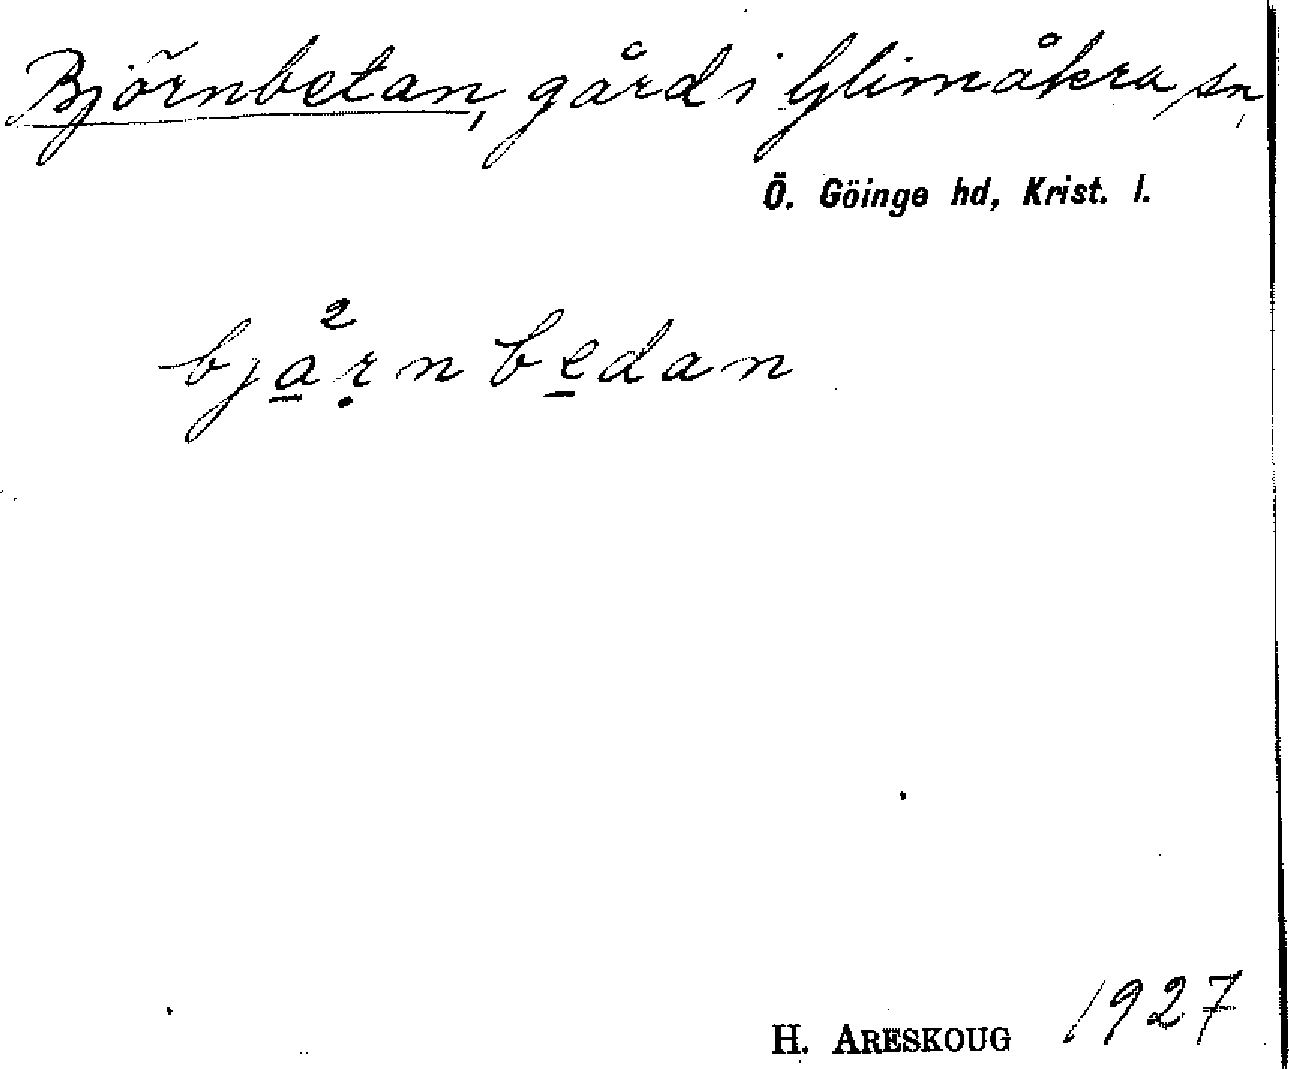 Björnbetan, gård i Glimåkra sn,
Ö. Göinge hd, Krist. l.
bja̲²ṛn be̲dan
H. ARESKOUG 1927